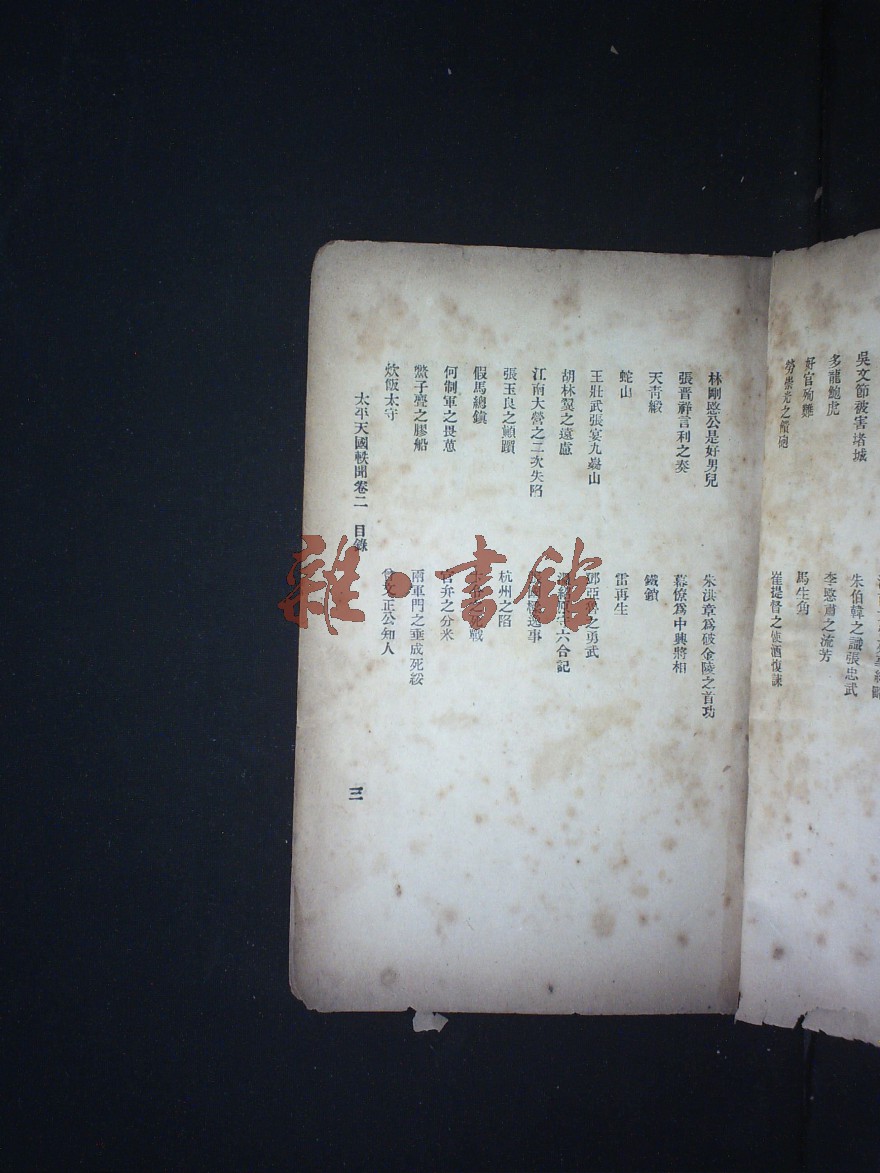 吳文節被害堵城
多龍鮑虎
好官殉難
勞崇光之
朱伯韓之識張忠武
李愍肅之流芳
馬生角
崔提督之使酒愎諫
林剛愍公是好男兒
張晉祥言利之奏
天靑緞
蛇山
王壯武張宴九嶷山
胡林翼之遠慮
江南大營之二次失陷
張玉良之顚躓
假馬總鎭
何制軍之畏葸
鱉子亹之膠船
炊飯太守
朱洪章爲破金陵之首功
幕僚爲中興將相
鐵鎖
雷再生
之勇武
六合記
逸事
杭州之陷
死戰
官弁之分米
兩軍門之垂成死綏
曾文正公知人
太平天國軼聞卷二 目錄
三
雜·書館